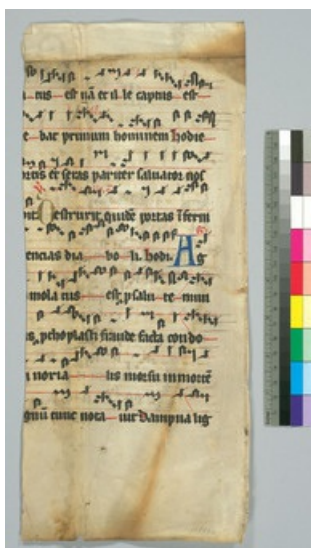 tus est nā et il le captus est
bat primum hominem hodie
et seras pariter saluator nos
Destruxit quidē portas īferni
encias dia bo li. hodi. Ag
mola tus est psalu te mun
pthoplasti fraude facta condo
noxia lis morsu in mortē
tunc nota uit dampna lig